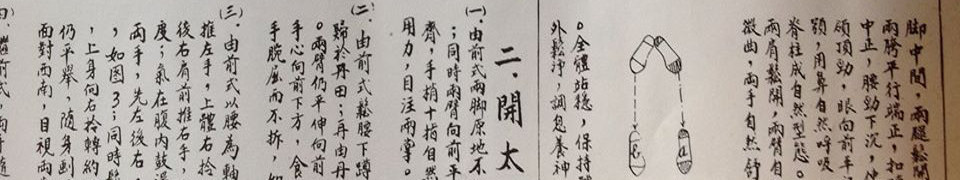 脚中間，兩腿鬆開
兩腾平行端正，扣
中正，腰勁下沉，
領頂勁，眼向前平
顎，用鼻自然呼吸
脊柱成自然型態。
兩肩鬆開，兩臂自
微曲，兩手自然舒
。全體站穩，保持
外鬆淨，調息養神
二．開太
㈠．由前式兩脚原地不
；同時兩臂向前平
齊，手梢十指自然
用力，目注兩掌。
㈡．由前式鬆腰下蹲
歸於丹田；再由丹
。兩臂仍平伸向前
手心向前下方，食
手腕屈而不拆，如
㈢．由前式以腰為軸
推左手，上體右拎
後右肩前推右手，
度；氣在腹內鼓盪
兩手，先左後右
，如图3；同時鬆
，上身向右拎轉約
仍平舉，隨身
面對西南，目視兩
繼前式，兩手隨